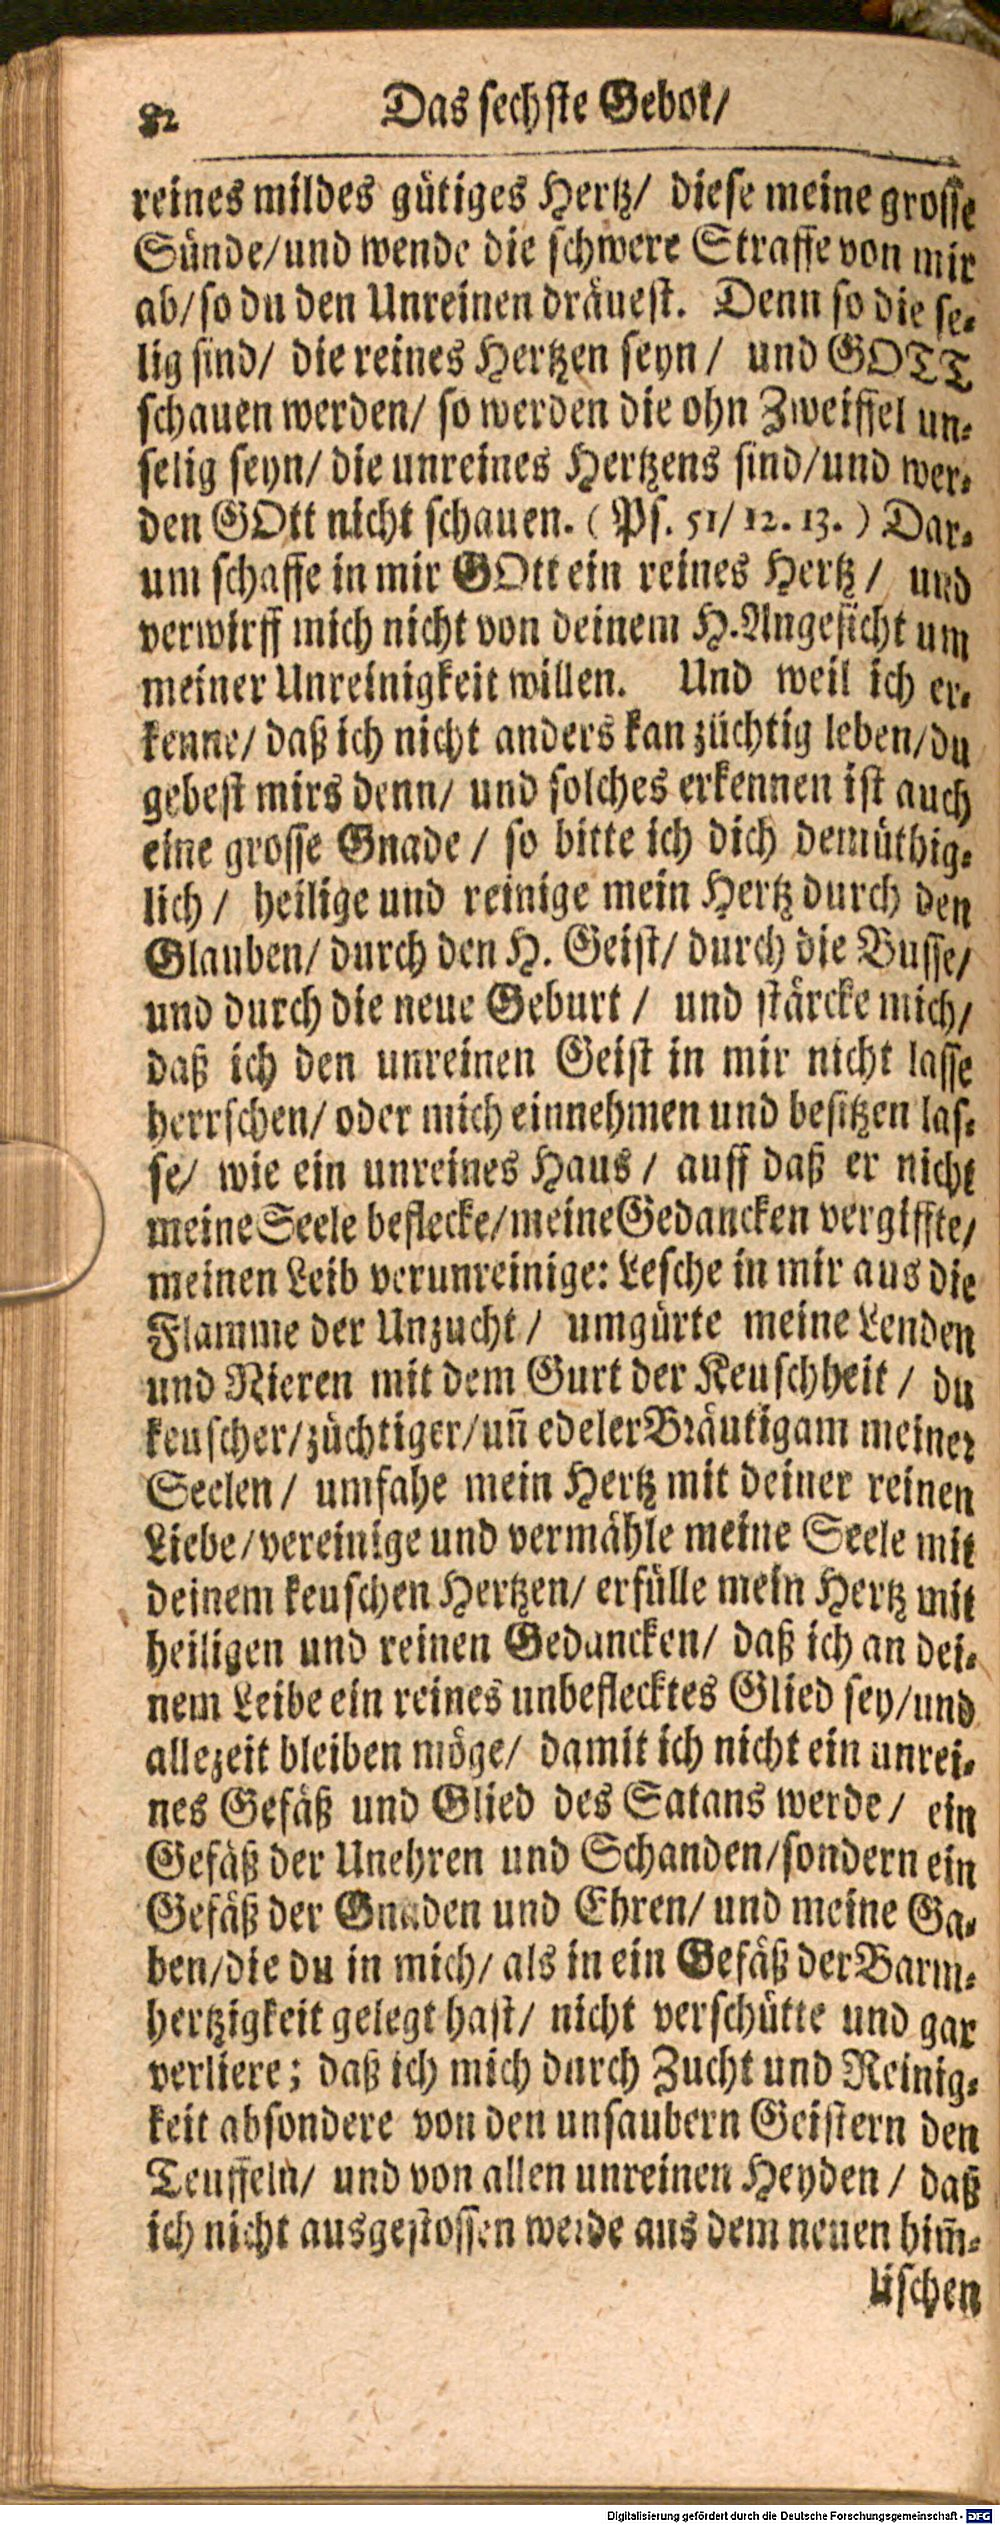 82 Das sechste Gebot/
reines mildes gütiges Hertz/ diese meine grosse
Sünde/und wende die schwere Straffe von mir
ab/so du den Unreinen dräuest. Denn so die se-
lig sind/ die reines Hertzen seyn/ und GOTT
schauen werden/ so werden die ohn Zweiffel un-
selig seyn/ die unreines Hertzens sind/und wer-
den GOtt nicht schauen. (Ps. 51/12. 13.) Dar-
um schaffe in mir GOtt ein reines Hertz/ und
verwirff mich nicht von deinem H. Angesicht um
meiner Unreinigkeit willen. Und weil ich er-
kenne/ daß ich nicht anders kan züchtig leben/du
gebest mirs denn/ und solches erkennen ist auch
eine grosse Gnade/ so bitte ich dich demüthig-
lich/ heilige und reinige mein Hertz durch den
Glauben/ durch den H. Geist/ durch die Busse/
und durch die neue Geburt/ und stärcke mich/
daß ich den unreinen Geist in mir nicht lasse
herrschen/ oder mich einnehmen und besitzen las-
se/ wie ein unreines Haus/ auff daß er nicht
meine Seele beflecke/meine Gedancken vergiffte/
meinen Leib verunreinige: Lesche in mir aus die
Flamme der Unzucht/ umgürte meine Lenden
und Nieren mit dem Gurt der Keuschheit/ du
keuscher/züchtiger/uñ edeler Bräutigam meiner
Seelen/ umfahe mein Hertz mit deiner reinen
Liebe/vereinige und vermähle meine Seele mit
deinem keuschen Hertzen/ erfülle mein Hertz mit
heiligen und reinen Gedancken/ daß ich an dei-
nem Leibe ein reines unbeflecktes Glied sey/und
allezeit bleiben möge/ damit ich nicht ein unrei-
nes Gefäß und Glied des Satans werde/ ein
Gefäß der Unehren und Schanden/sondern ein
Gefäß der Gnaden und Ehren/ und meine Ga-
ben/die du in mich/ als in ein Gefäß der Barm-
hertzigkeit gelegt hast/ nicht verschütte und gar
verliere; daß ich mich durch Zucht und Reinig-
keit absondere von den unsaubern Geistern den
Teuffeln/ und von allen unreinen Heyden/ daß
ich nicht ausgestossen werde aus dem neuen him̃-
lischen
Digitalisierung gefördert durch die Deutsche Forschungsgemeinschaft - DFG